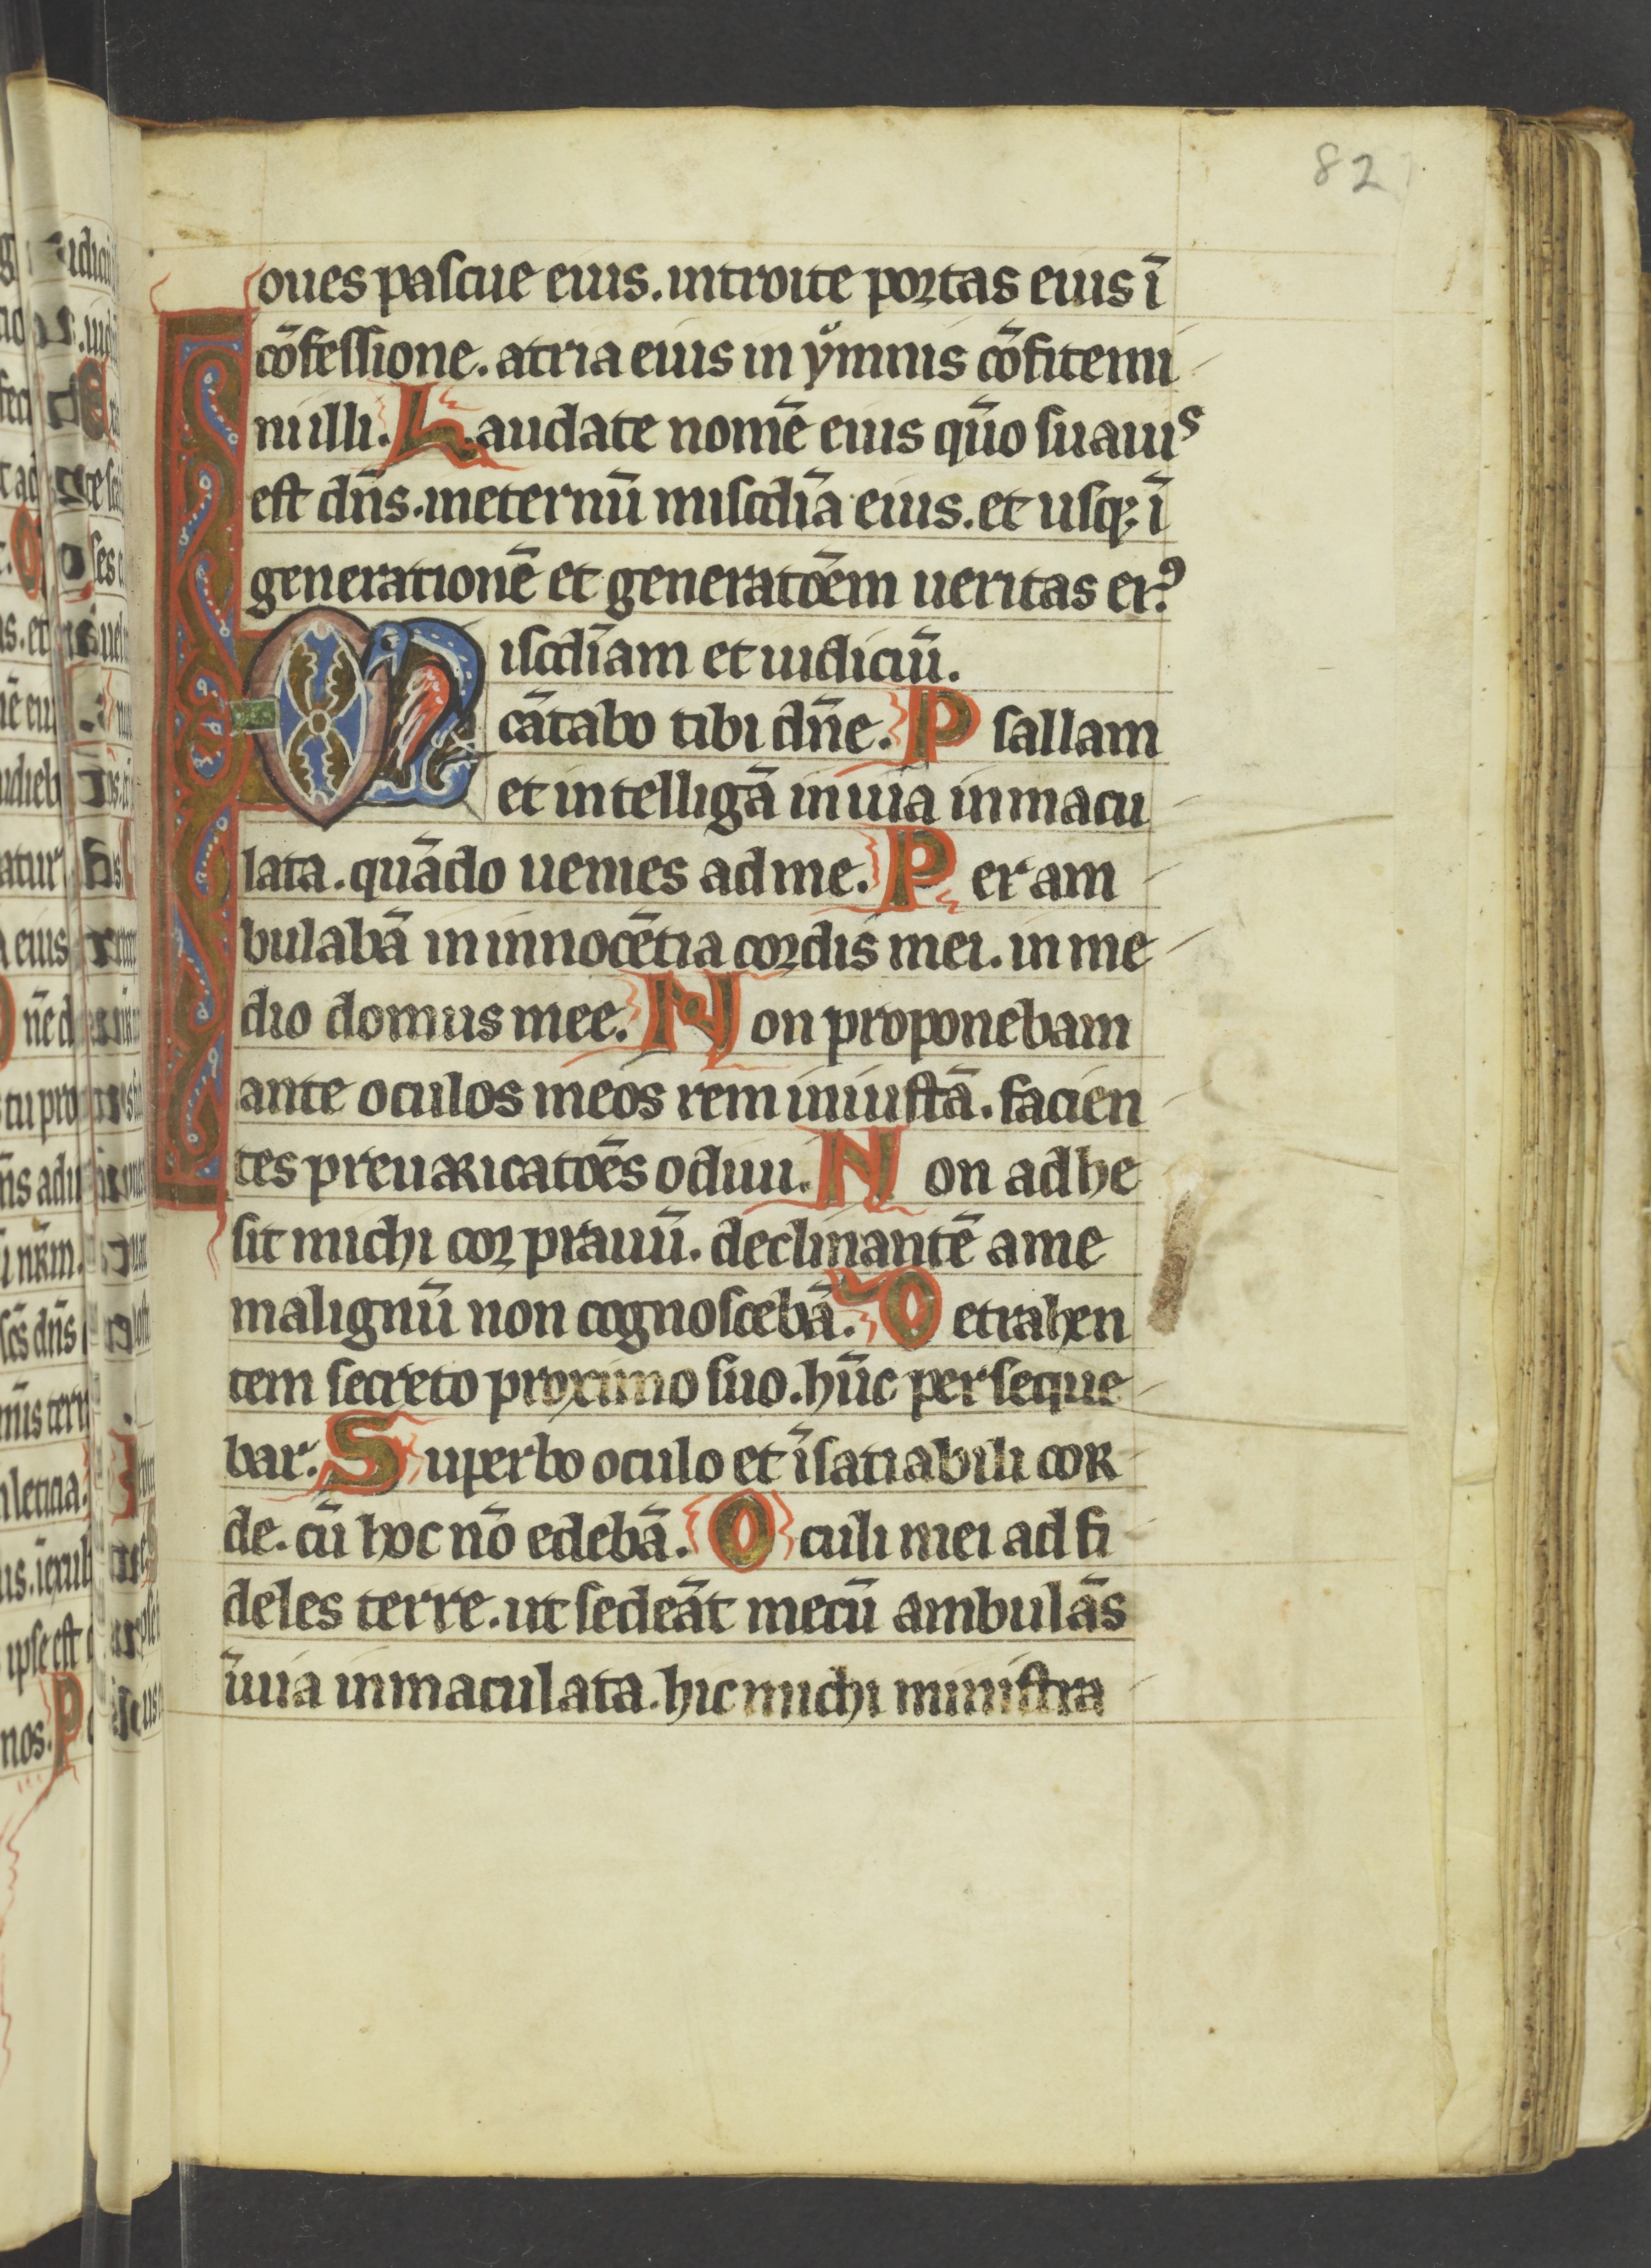 82
oues pascue eius. introite portas eius ī
cōfessione. atria eius in ymnis cōfitemi
ni illi. Laudate nomē eius qūo suauis
est dn̄s. ineternū miscdīa eius. et usq; ī
generationē et generatōem ueritas ei9.
Miscdīam et iudiciū.
cātabo tibi dn̄e. Psallam
et intelligā in uia inmacu
lata. quādo uenies ad me. Peram
bulabā in innocētia cordis mei. in me
dio domus mee. Non proponebam
ante oculos meos rem iniustā. facien
tes preuaricatōes odiui. Non adhe
sit michi cor prauū. declinantē a me
malignū non cognoscebā. Detrahen
tem secreto proximo suo. hūc perseque
bar. Superbo oculo et īsatiabili cor
de. cū hoc nō edebā. Oculi mei ad fi
deles terre. ut sedeāt mecū ambulās
ī uia inmaculata. hic michi ministra